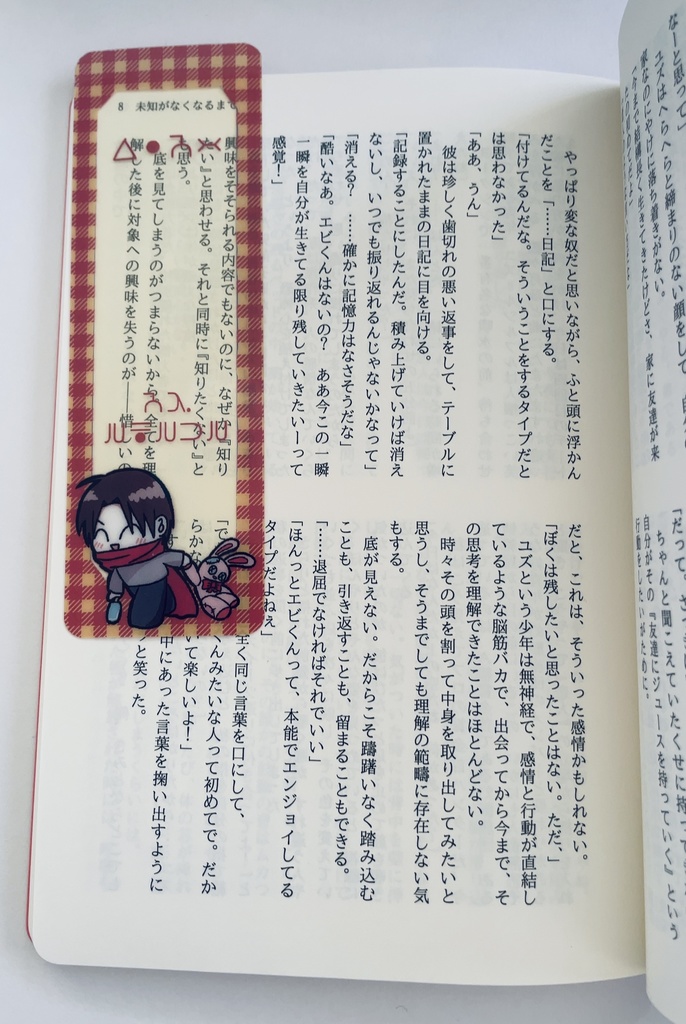 なーと思って」
ユズはへらへらと締まりのない顔をして、
家なのにやけに落ち着きがない。
「今まで結構長く生きてきたけどさ、家に友達が来
「だって。
ちゃんと聞こえていたくせに持って
自分がその『友達にジュースを持っていく』という
行動をしたいがために。
8　未知がなくなるまで
やっぱり変な奴だと思いながら、ふと頭に浮かん
だことを「……日記」と口にする。
「付けてるんだな。そういうことをするタイプだと
は思わなかった」
「ああ、うん」
彼は珍しく歯切れの悪い返事をして、テーブルに
置かれたままの日記に目を向ける。
「記録することにしたんだ。積み上げていけば消え
ないし、いつでも振り返れるんじゃないかなって」
「消える？　……確かに記憶力はなさそうだな」
「酷いなあ。エビくんはないの？　ああ今この一瞬
一瞬を自分が生きてる限り残していきたいーって
感覚！」
興味をそそられる内容でもないのに、なぜか『知り
たい』と思わせる。それと同時に『知りたくない』と
も思う。
底を見てしまうのがつまらないから。全てを理
解した後に対象への興味を失うのが――惜しいの
だと、これは、そういった感情かもしれない。
「ぼくは残したいと思ったことはない。ただ、」
ユズという少年は無神経で、感情と行動が直結し
ているような脳筋バカで、出会ってから今まで、そ
の思考を理解できたことはほとんどない。
時々その頭を割って中身を取り出してみたいと
思うし、そうまでしても理解の範疇に存在しない気
もする。
底が見えない。だからこそ躊躇いなく踏み込む
ことも、引き返すことも、留まることもできる。
「……退屈でなければそれでいい」
「ほんっとエビくんって、本能でエンジョイしてる
タイプだよねぇ」
全く同じ言葉を口にして、
くんみたいな人って初めてで。だか
いて楽しいよ！」
中にあった言葉を掬い出すように
と笑った。